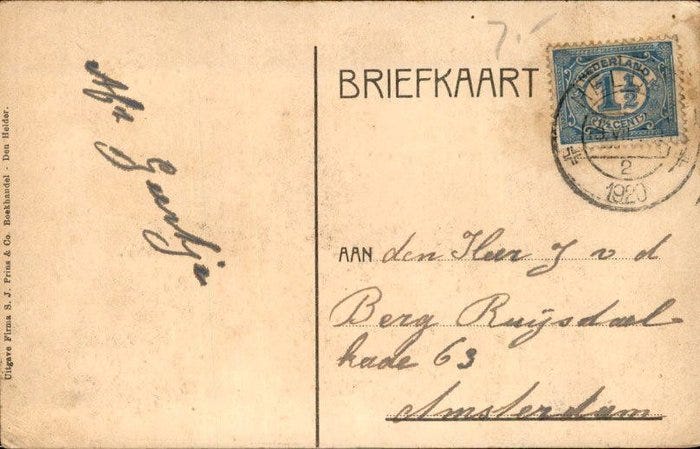 7.-
BRIEFKAART
NEDERLAND
1½
2
1920
AAN den Heer J v d
Berg Ruijsdael-
kade 63
Amsterdam
Uitgave Firma S. J. Prins & Co. Boekhandel - Den Helder.